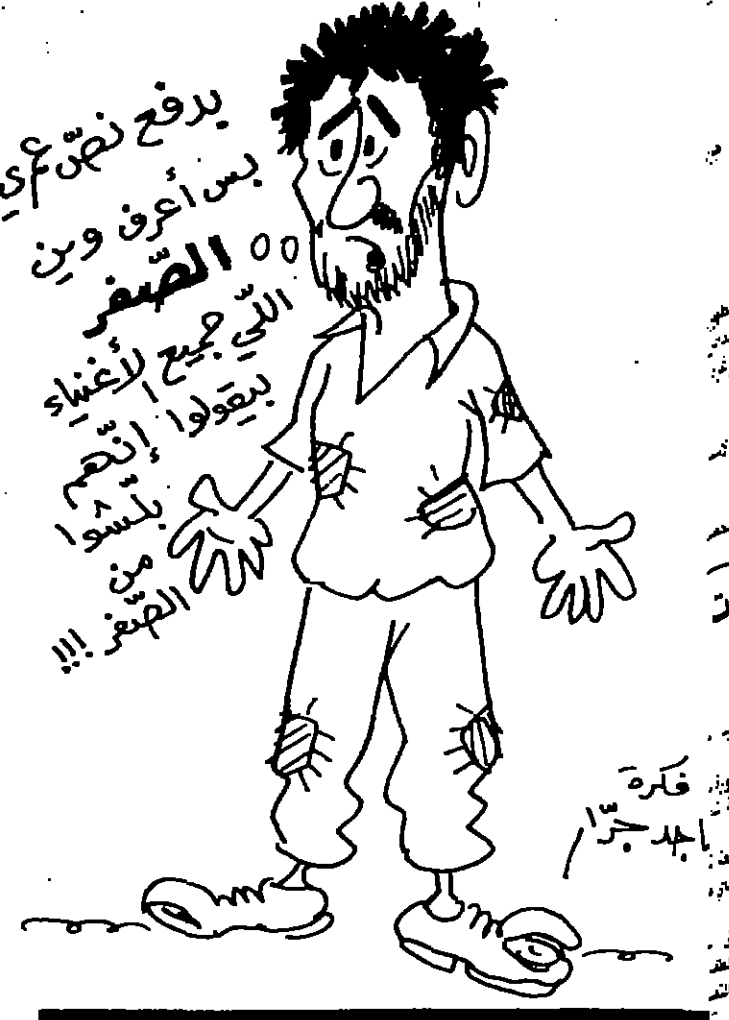 بدفع نصّ عمري
بس أعرف وين
الصّفر
اللّي جميع الأغنياء
بيقولوا إنّهم
بلّشوا
من
الصّفر !!!
فكرة
ماجد جرّا